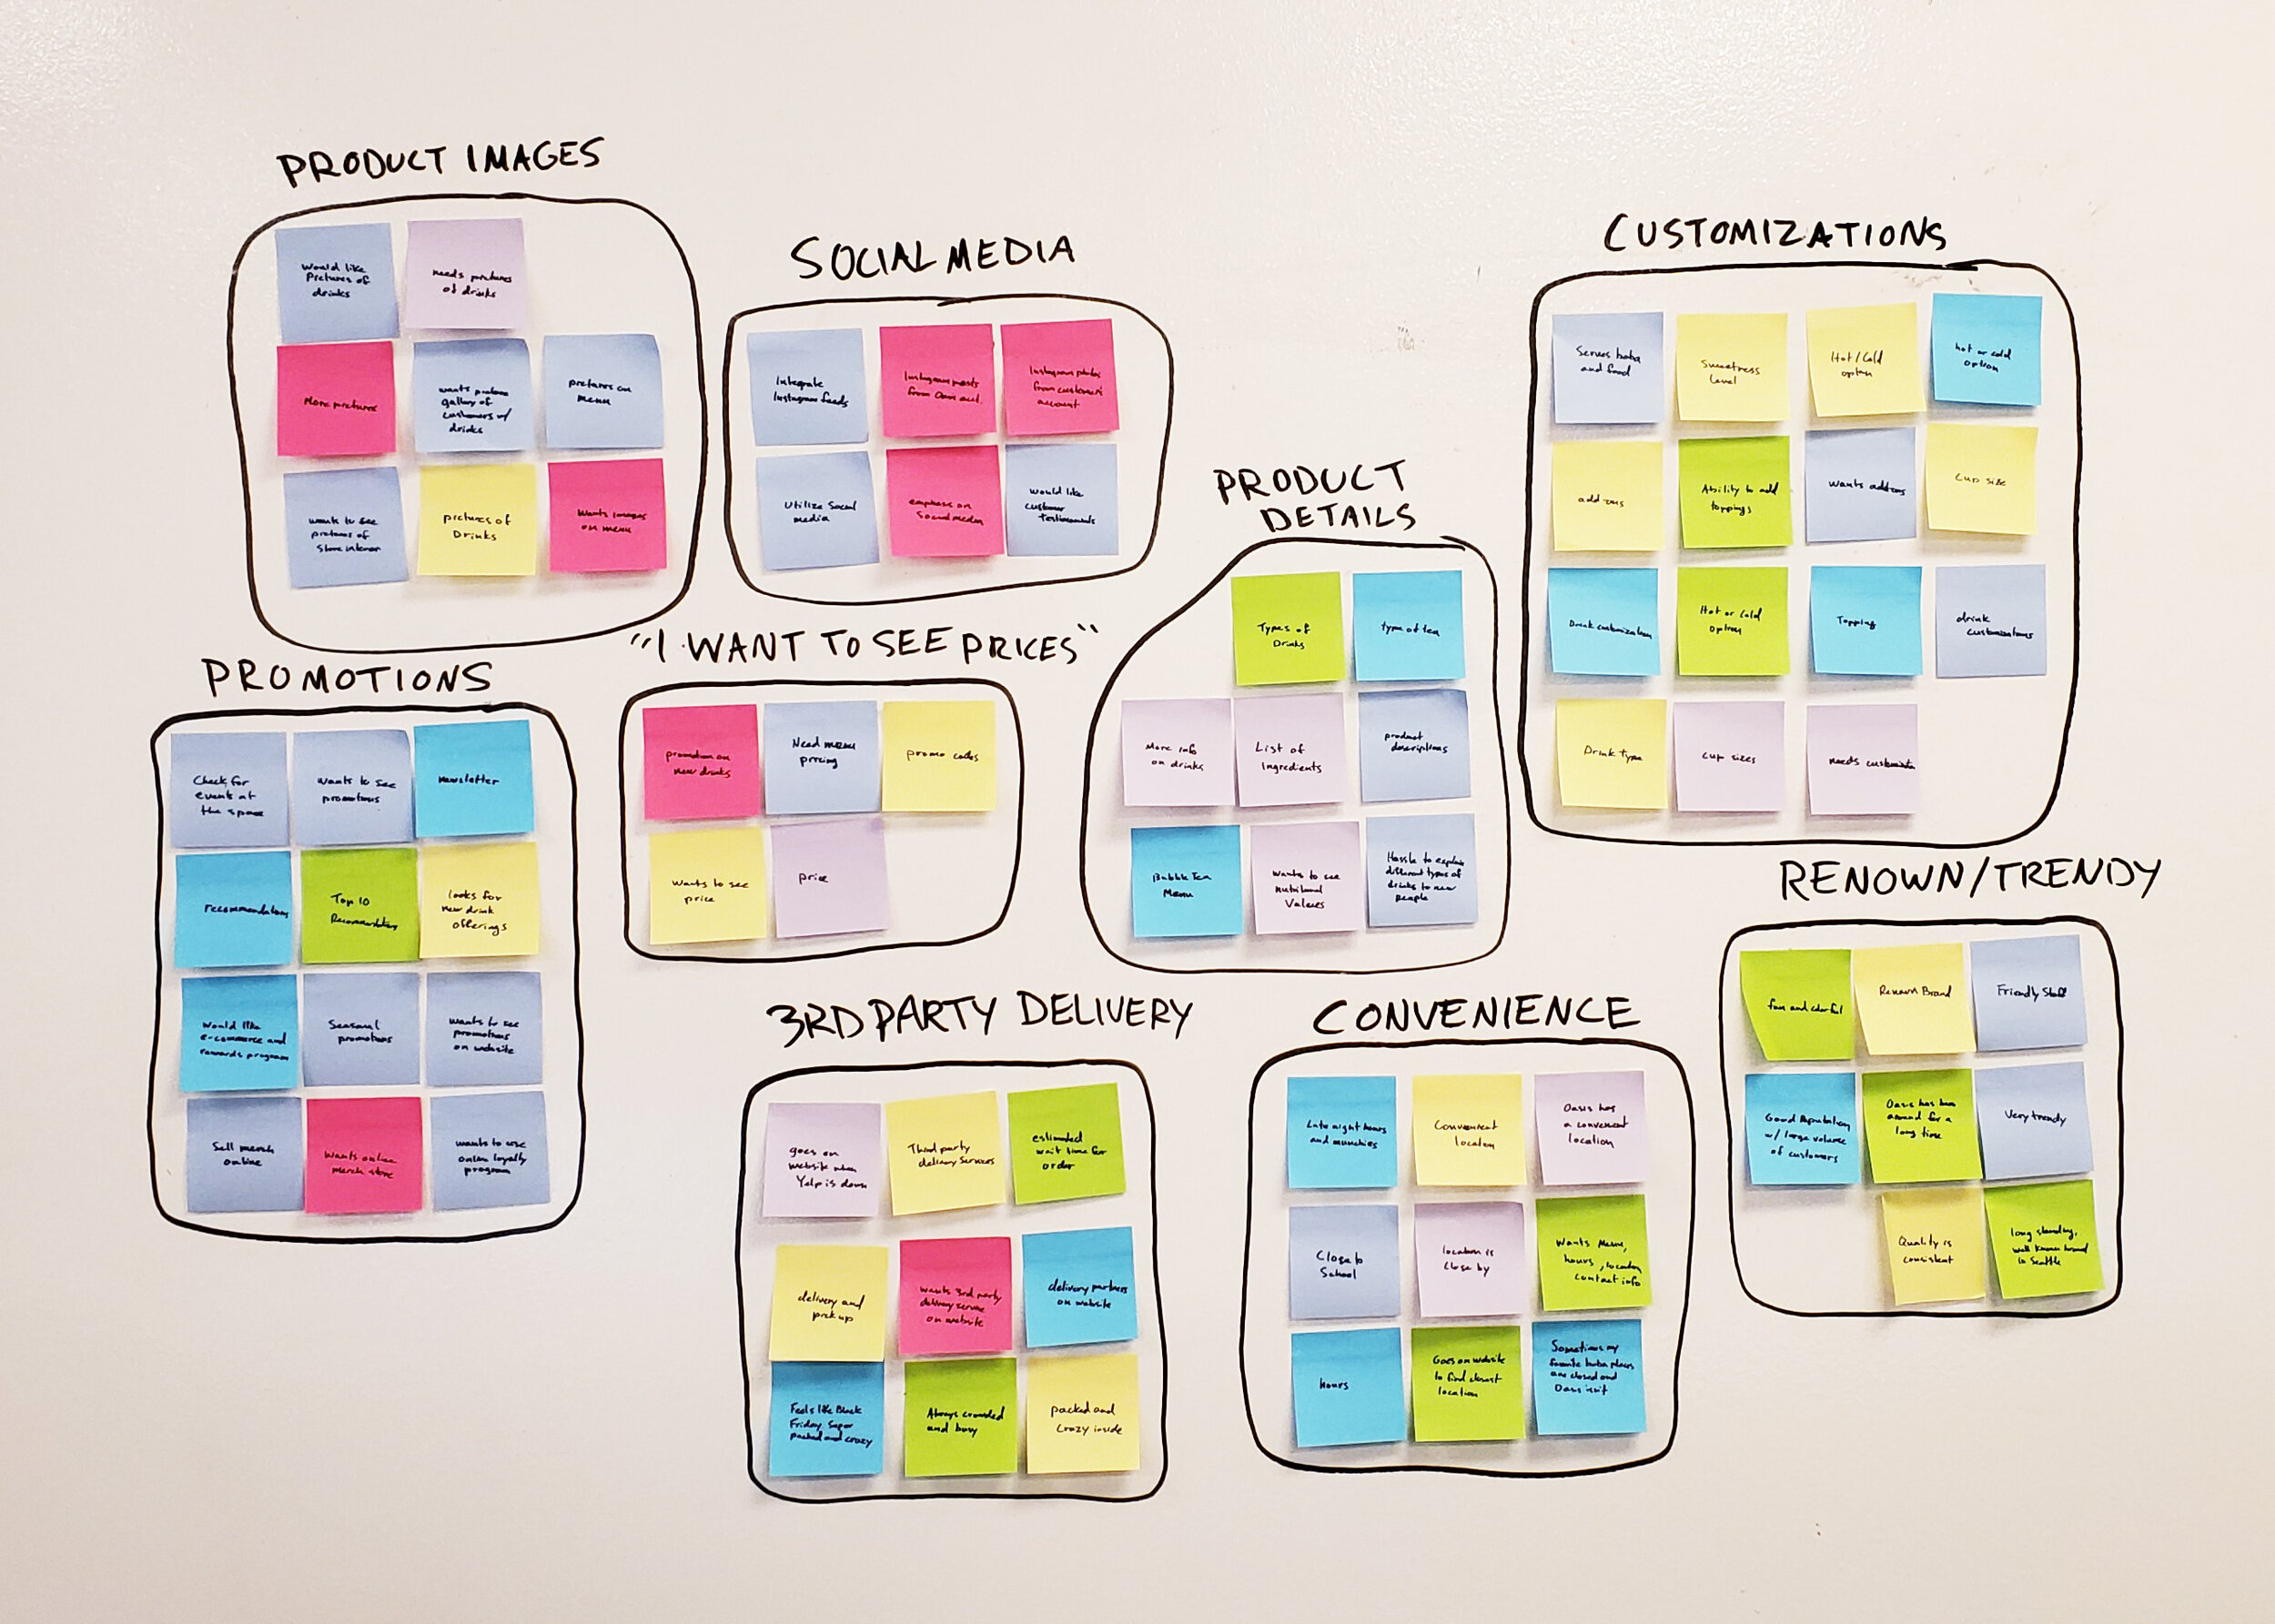 PRODUCT IMAGES
Would like
Pictures of
drinks
needs pictures
of drinks
More pictures
wants picture
gallery of
customers w/
drinks
pictures on
menu
wants to see
pictures of
Store interior
pictures of
Drinks
Wants images
on menu
SOCIAL MEDIA
Integrate
Instagram feeds
Instagram posts
from Oasis acct.
Instagram photos
from customers
account
Utilize Social
media
emphasis on
Social media
would like
customer
Testimonials
CUSTOMIZATIONS
Serves boba
and food
Sweetness
Level
Hot/Cold
option
hot or cold
option
add-ons
Ability to add
toppings
Wants add-ons
Cup size
Drink customization
Hot or Cold
option
Topping
drink
customizations
Drink Type
cup sizes
needs
PRODUCT
DETAILS
Types of
Drinks
type of tea
More info
on drinks
List of
Ingredients
product
descriptions
Bubble Tea
Menu
Wants to see
nutritional
Values
Hassle to explain
different types of
drinks to new
people
PROMOTIONS
Check for
events at
the space
Wants to see
promotions
newsletter
recommendations
Top 10
Recommendations
looks for
new drink
offerings
Would like
e-commerce and
rewards program
Seasonal
promotions
wants to see
promotions
on website
Sell merch
online
Wants online
merch store
wants to use
online loyalty
program
"I WANT TO SEE PRICES"
promotion on
new drinks
Need menu
pricing
promo codes
Wants to see
price
price
3RD PARTY DELIVERY
goes on
website when
Yelp is down
Third party
delivery services
estimated
wait time for
order
delivery and
pick up
wants 3rd party
delivery service
on website
delivery partners
on website
Feels like Black
Friday, Super
packed and crazy
Always crowded
and busy
packed and
Crazy inside
CONVENIENCE
Late night hours
and munchies
Convenient
location
Oasis has
a convenient
location
Close to
School
location is
close by
Wants Menu,
hours, location
contact info
hours
Goes on website
to find closest
location
Sometimes my
favorite boba places
are closed and
Oasis isn't
RENOWN/TRENDY
fun and colorful
Renown Brand
Friendly Staff
Good Reputation
w/ large volume
of customers
Oasis has been
around for a
long time
Very trendy
Quality is
consistent
long standing,
well known brand
in Seattle